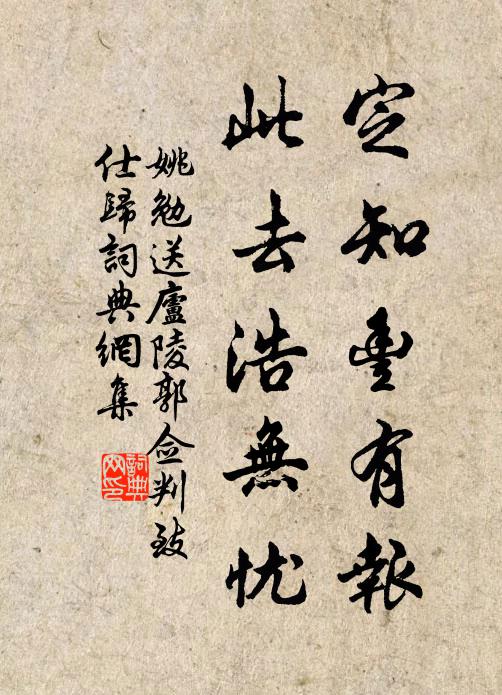 定知豊有報
此去浩無忧
姚勉送廬陵郭佥判致
仕歸詞典網集
詞典網印